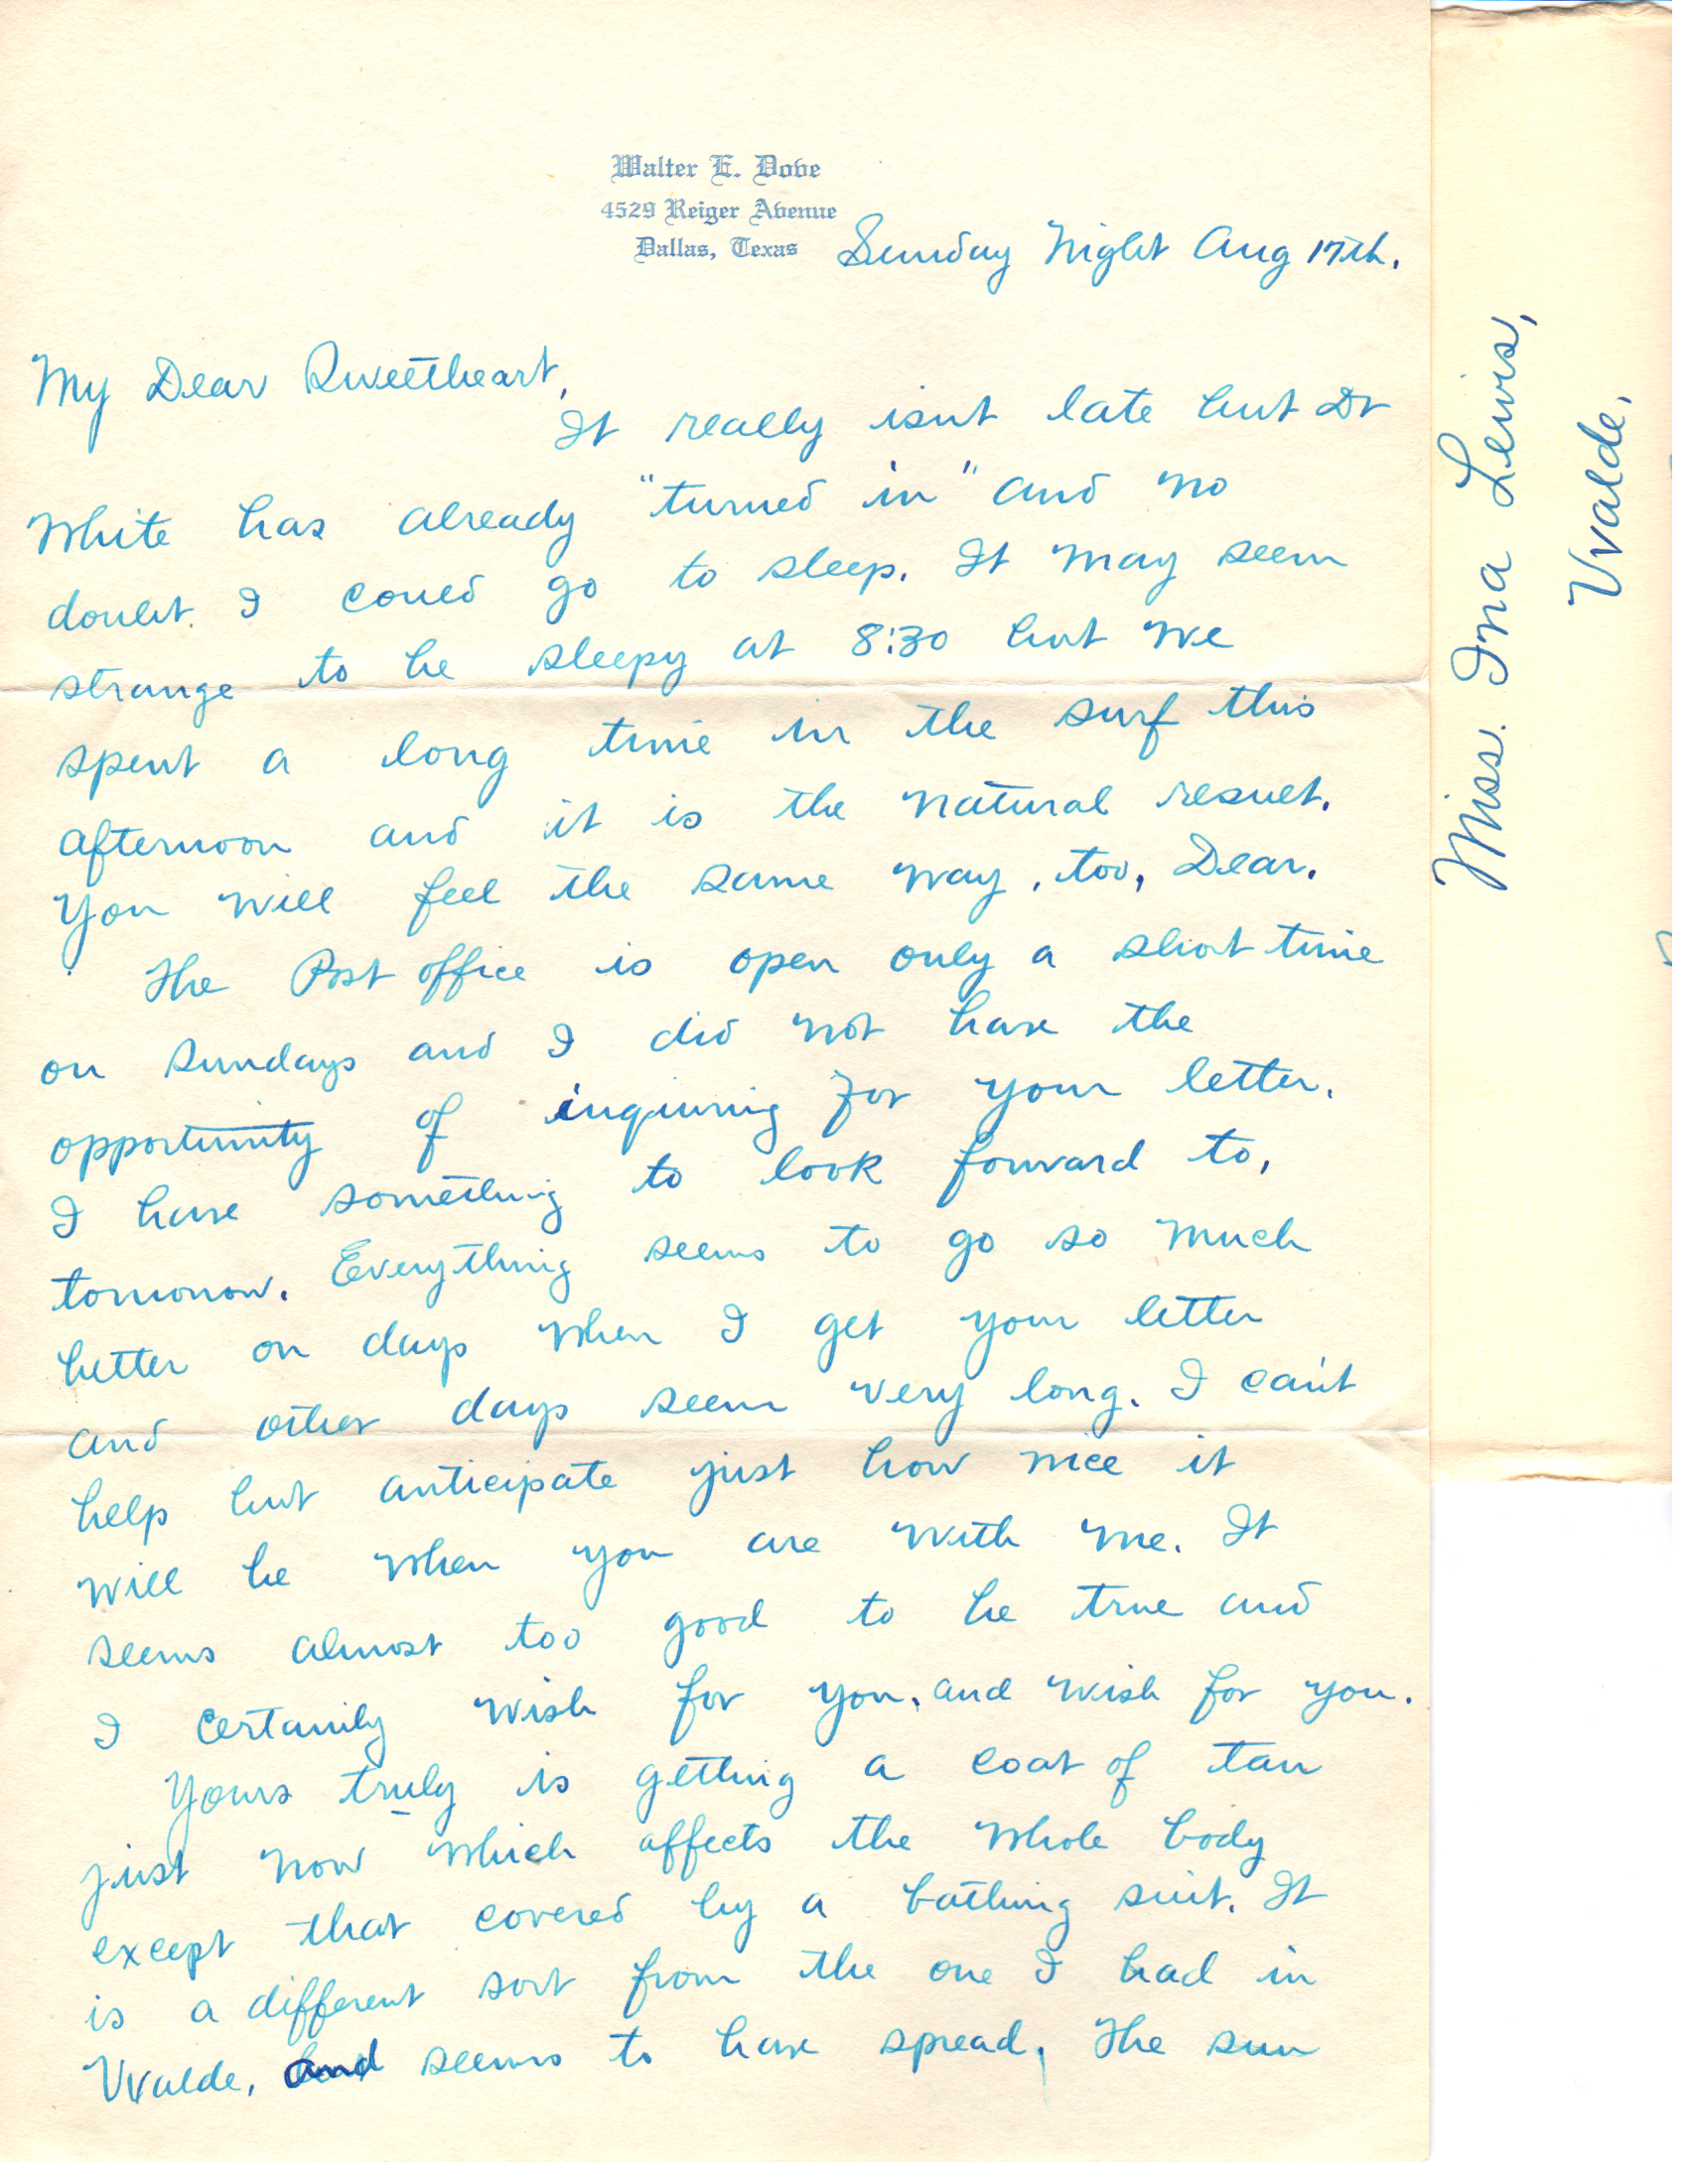 Walter E. Dove
4529 Reiger Avenue
Dallas, Texas
Sunday Night Aug 17th.
My Dear Sweetheart,
It really isn't late but Dr
White has already "turned in" and no
doubt I could go to sleep. It may seem
strange to be sleepy at 8:30 but we
spent a long time in the surf this
afternoon and it is the natural result.
You will feel the same way, too, Dear.
The Post office is open only a short time
on Sundays and I did not have the
opportunity of inquiring for your letter.
I have something to look forward to,
tomorrow. Everything seems to go so much
better on days when I get your letter
and other days seem very long. I can't
help but anticipate just how nice it
will be when you are with me. It
seems almost too good to be true and
I certainly wish for you, and wish for you.
Yours truly is getting a coat of tan
just now which affects the whole body
except that covered by a bathing suit. It
is a different sort from the one I had in
Uvalde, and seems to have spread. The sun
Miss. Ina Lewis,
Uvalde,